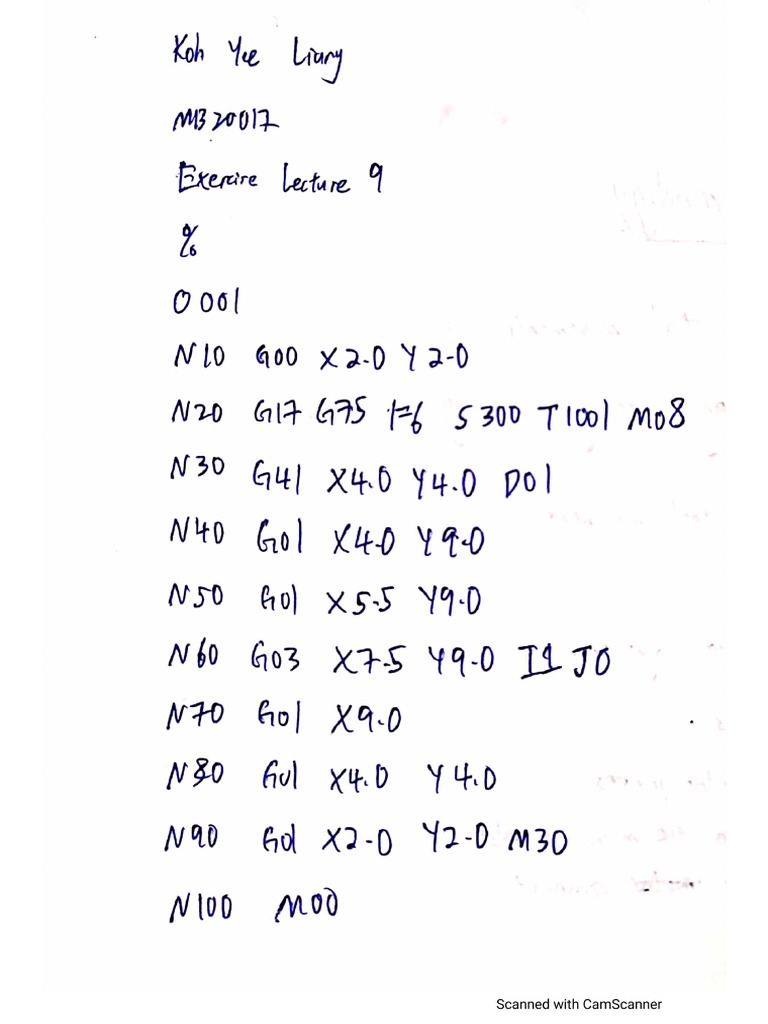 Koh Yee Liang
MB20017
Exercise Lecture 9
%
O001
N10 G00 X2.0 Y2.0
N20 G17 G75 F6 S300 T1001 M08
N30 G41 X4.0 Y4.0 D01
N40 G01 X4.0 Y9.0
N50 G01 X5.5 Y9.0
N60 G03 X7.5 Y9.0 I1 J0
N70 G01 X9.0
N80 G01 X4.0 Y4.0
N90 G01 X2.0 Y2.0 M30
N100 M00
Scanned with CamScanner